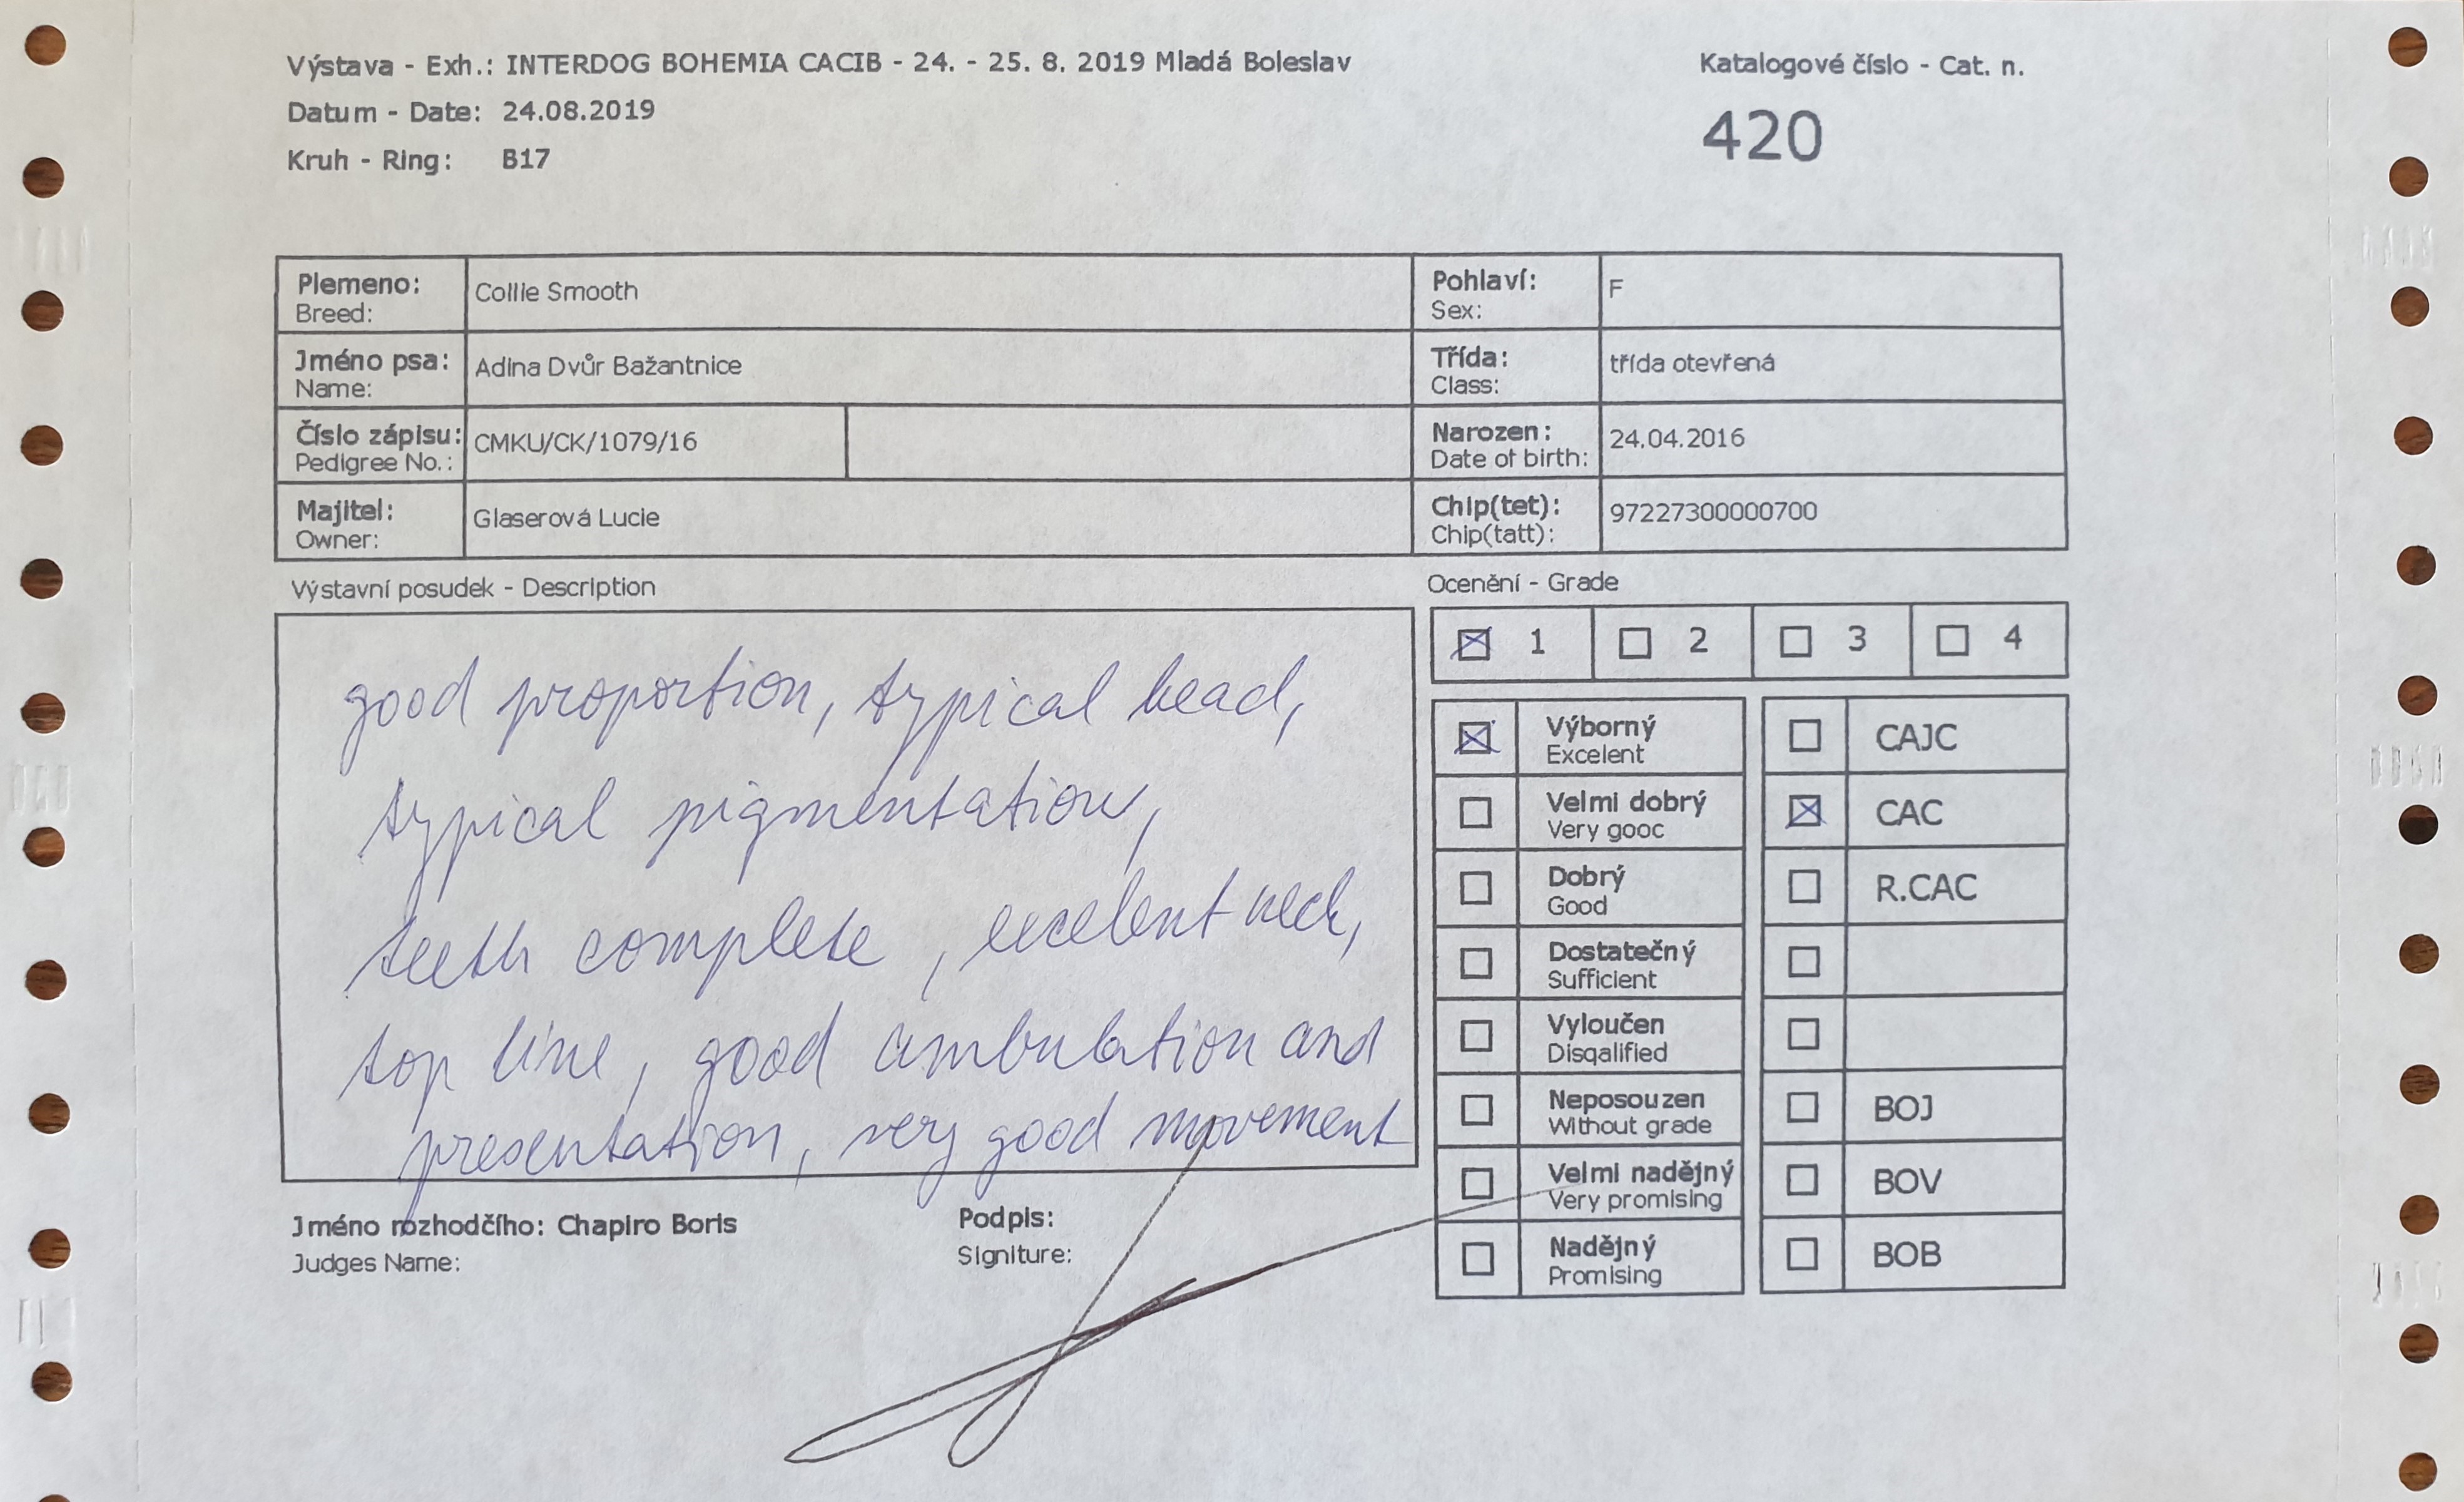 Výstava - Exh.: INTERDOG BOHEMIA CACIB - 24. - 25. 8. 2019 Mladá Boleslav
Datum - Date: 24.08.2019
Kruh - Ring: B17
Katalogové číslo - Cat. n.
420
Plemeno: Collie Smooth
Breed:
Pohlaví: F
Sex:
Jméno psa: Adina Dvůr Bažantnice
Name:
Třída: třída otevřená
Class:
Číslo zápisu: CMKU/CK/1079/16
Pedigree No.:
Narozen: 24.04.2016
Date of birth:
Majitel: Glaserová Lucie
Owner:
Chip(tet): 97227300000700
Chip(tatt):
Výstavní posudek - Description
good proportion, typical head,
typical pigmentation,
teeth complete, excelent neck,
top line, good ambulation and
presentation, very good movement
Ocenění - Grade
1 2 3 4
Výborný
Excelent
CAJC
Velmi dobrý
Very gooc
CAC
Dobrý
Good
R.CAC
Dostatečný
Sufficient
Vyloučen
Disqalified
Neposouzen
Without grade
BOJ
Velmi nadějný
Very promising
BOV
Nadějný
Promising
BOB
Jméno rozhodčího: Chapiro Boris
Judges Name:
Podpis:
Signiture: